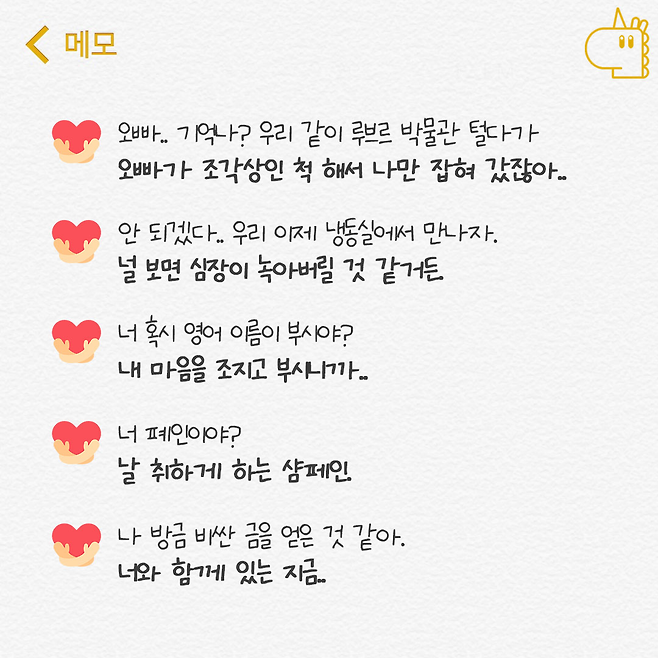 메모
오빠.. 기억나? 우리 같이 루브르 박물관 털다가
오빠가 조각상인 척 해서 나만 잡혀 갔잖아..
안 되겠다.. 우리 이제 냉동실에서 만나자.
널 보면 심장이 녹아버릴 것 같거든.
너 혹시 영어 이름이 부시야?
내 마음을 조지고 부시니까..
너 페인이야?
날 취하게 하는 샴페인.
나 방금 비싼 금을 얻은 것 같아.
너와 함께 있는 지금..